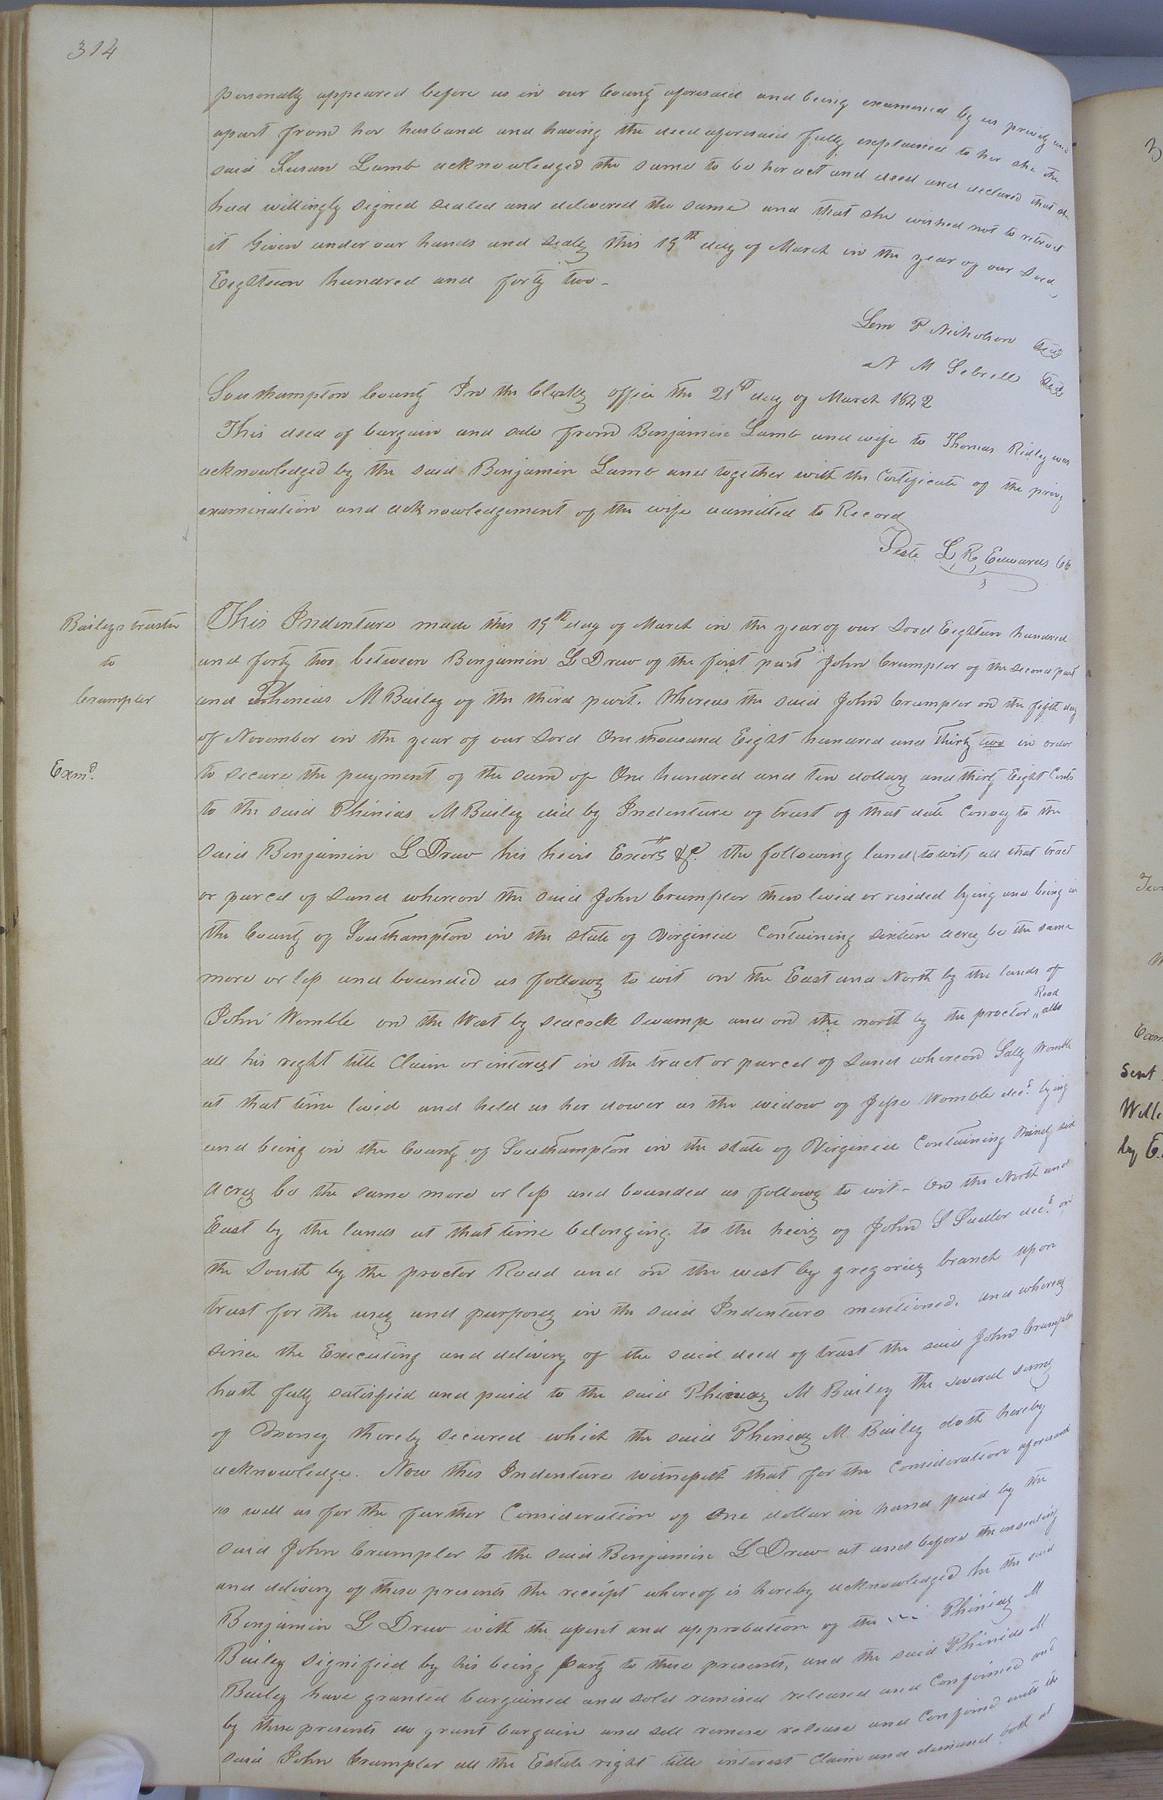 314
personally appeared before us in our County aforesaid and being examined by us privily and
apart from her husband and having the deed aforesaid fully explained to her she the
said Susan Lamb acknowledged the same to be her act and deed and declared that she
had willingly signed sealed and delivered the same and that she wished not to retract
it Given under our hands and seals this 19th day of March in the year of our Lord
Eighteen hundred and forty two -
Lem P Nicholson Seal
N M Sebrell Seal
Southampton County In the Clerks office the 21st day of March 1842
This deed of bargain and sale from Benjamin Lamb and wife to Thomas Ridley was
acknowledged by the said Benjamin Lamb and together with the Certificate of the privy
examination and acknowledgement of the wife admitted to Record
Teste L. R. Edwards CC
Baileys trustee
to
Crumpler
Examd.
This Indenture made this 19th day of March in the year of our Lord Eighteen hundred
and forty two between Benjamin L Drew of the first part John Crumpler of the second part
and Phineas M Bailey of the third part. Whereas the said John Crumpler on the fifth day
of November in the year of our Lord One thousand Eight hundred and Thirty two in order
to secure the payment of the sum of One hundred and ten dollars and thirty Eight Cents
to the said Phinias M Bailey did by Indenture of trust of that date Convey to the
said Benjamin L Drew his heirs Exors &c. the following land (to wit) all that tract
or parcel of Land whereon the said John Crumpler then lived or resided lying and being in
the County of Southampton in the state of Virginia Containing sixteen acres be the same
more or less and bounded as follows to wit on the East and North by the lands of
John Womble on the West by Seacock Swamp and on the north by the proctor Road also
all his right title Claim or interest in the tract or parcel of Land whereon Sally Womble
at that time lived and held as her dower as the widow of Jesse Womble decd. lying
and being in the County of Southampton in the state of Virginia Containing Ninety six
acres be the same more or less and bounded as follows to wit - On the North and
East by the lands at that time belonging to the heirs of John S Sadler decd. on
the South by the proctor Road and on the west by gregories branch upon
trust for the uses and purposes in the said Indenture mentioned. and whereas
since the Executing and delivery of the said deed of trust the said John Crumpler
hath fully satisfied and paid to the said Phineas M Bailey the several sums
of Money thereby secured which the said Phineas M. Bailey doth hereby
acknowledge. Now this Indenture witnesseth that for the Consideration aforesaid
as well as for the further Consideration of One dollar in hand paid by the
said John Crumpler to the said Benjamin L Drew at and before the ensealing
and delivery of these presents the receipt whereof is hereby acknowledged he the said
Benjamin L Drew with the assent and approbation of the Phinias M
Bailey signified by his being party to these presents, and the said Phinias M
Bailey have granted bargained and sold remised released and Confirmed and
by these presents do grant bargain and sell remise release and Confirm unto the
said John Crumpler all the Estate right title interest Claim and demand both at